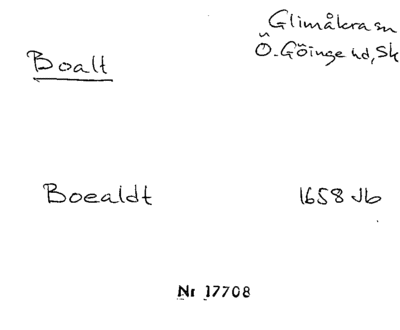 Glimåkra sn
Boalt
Ö. Göinge hd, Sk
Boealdt 1658 Jb
Nr 17708